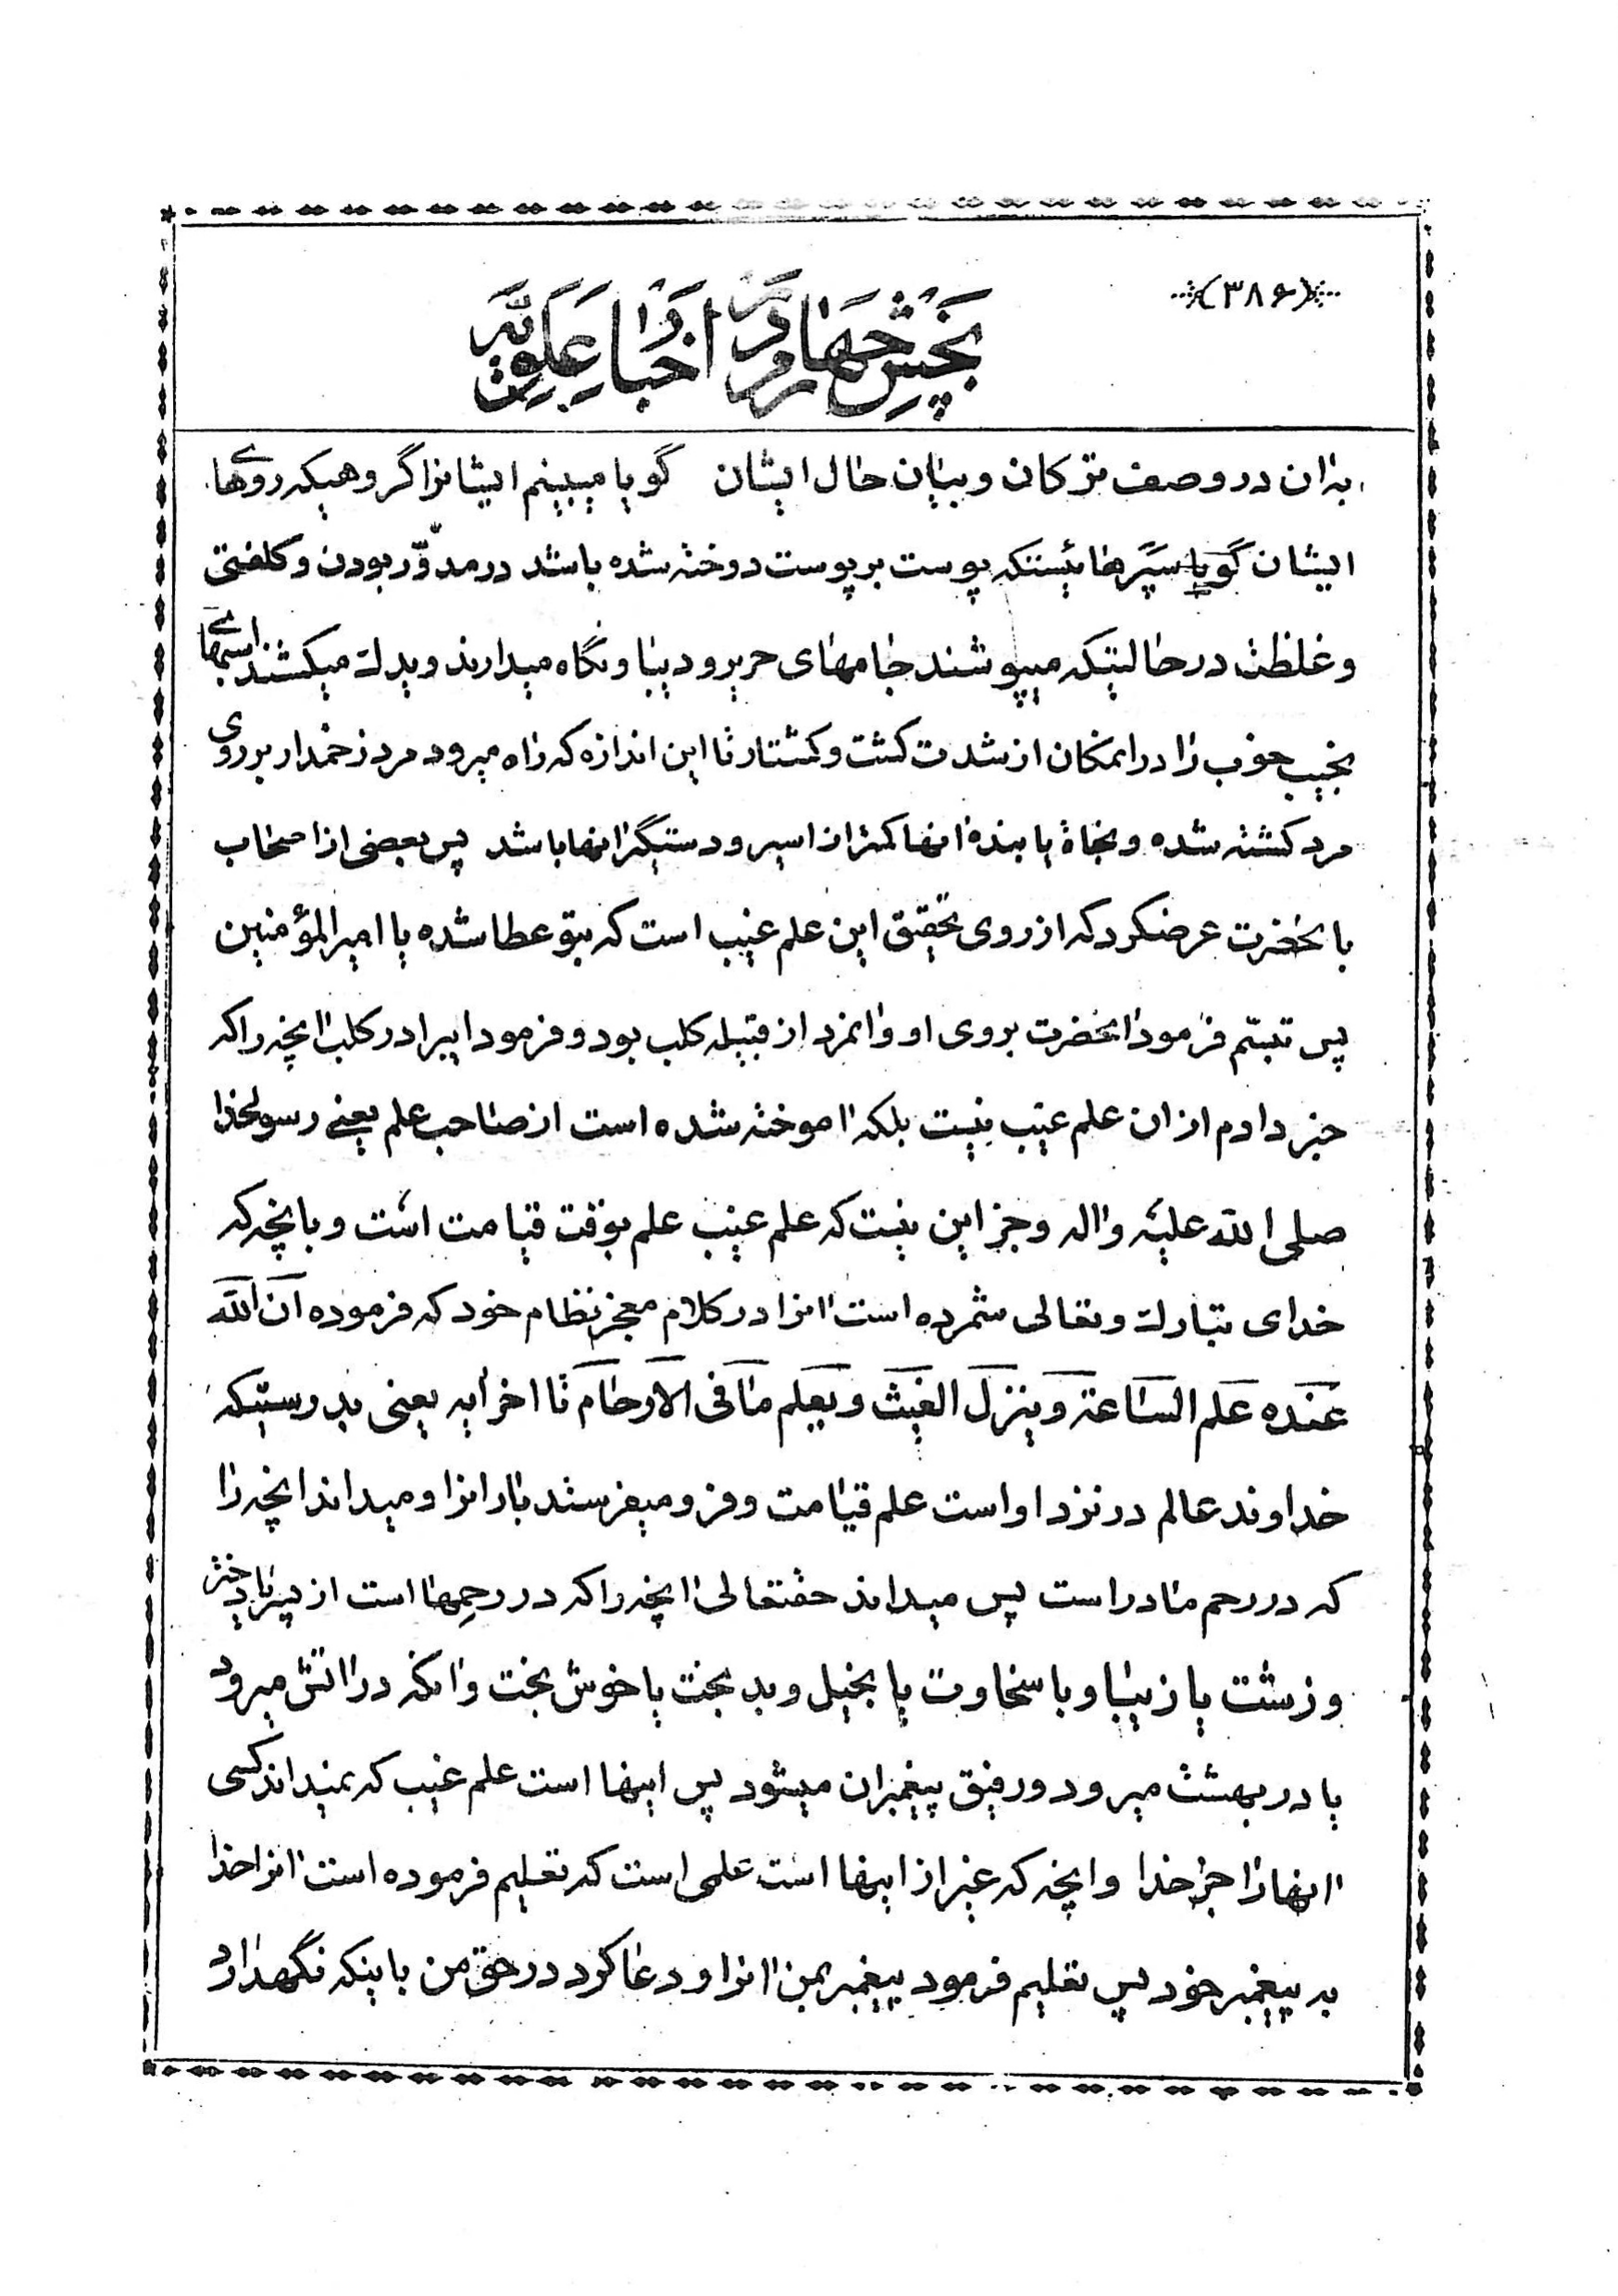 (۳۸۶)
بخش چهارم در اخبار علویه
بدان در وصف ترکان و بیان حال ایشان گویا میبینم ایشانرا گروهیکه رویهای
ایشان گویا سپرهائیستکه پوست بر پوست دوخته شده باشد در مدوّر بودن و کلفتی
و غلظت در حالتیکه میپوشند جامهای حریر و دیبا و نگاه میدارند و یدک میکشند اسبهای
نجیب خوب را در انمکان از شدت کشت و کشتار تا این اندازه که راه میرود مرد زخمدار بر روی
مرد کشته شده و نجاة یابنده انها کمتر از اسیر و دستگیر انها باشد پس بعضی از اصحاب
بانحضرت عرضکرد که از روی تحقیق این علم غیب است که بتو عطا شده یا امیر المؤمنین
پس تبسّم فرمود انحضرت بروی او و انمرد از قبیله کلب بود و فرمود ایبرادر کلب انچه را که
خبر دادم از ان علم غیب نیست بلکه اموخته شده است از صاحب علم یعنی رسولخدا
صلی الله علیه و اله و جز این نیست که علم غیب علم بوقت قیامت است و بانچه که
خدای تبارک و تعالی شمرده است انرا در کلام معجز نظام خود که فرموده ان الله
عنده علم الساعة و ینزل الغیث و یعلم ما فی الارحام تا اخر ایه یعنی بدرستیکه
خداوند عالم در نزد او است علم قیامت و فرو میفرستد بارانرا و میداند انچه را
که در رحم مادر است پس میداند حقتعالی انچه را که در رحمها است از پسر یا دختر
و زشت یا زیبا و با سخاوت یا بخیل و بد بخت یا خوش بخت و انکه در اتش میرود
یا در بهشت میرود و رفیق پیغمبران میشود پس اینها است علم غیب که نمیداند کسی
انها را جز خدا و انچه که غیر از اینها است علمی است که تعلیم فرموده است انرا خدا
به پیغمبر خود پس تعلیم فرمود پیغمبر بمن انرا و دعا کرد در حق من باینکه نگهدارد